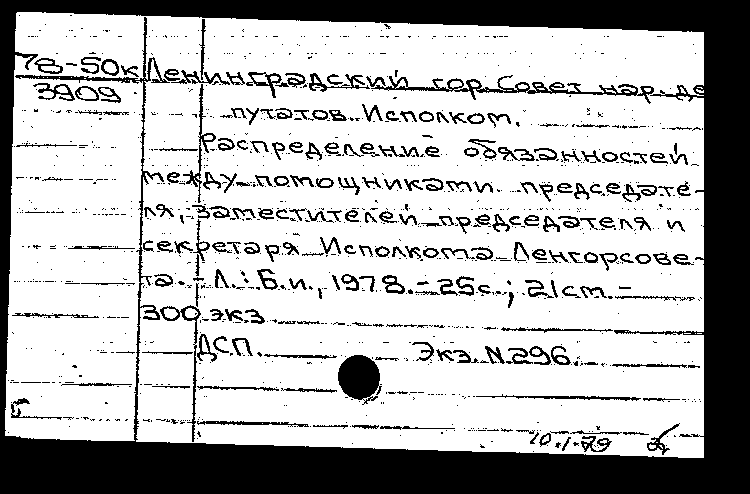 78-50к Ленинградский гор. Совет нар. де
3909
путатов. Исполком.
Распределение обязанностей
между помощниками председате-
ля, заместителей председателя и
секретаря Исполкома Ленгорсове-
та. - Л.: Б.и., 1978. - 25с.; 21см. -
300 экз
ДСП. Экз. N 296.
10.1.79